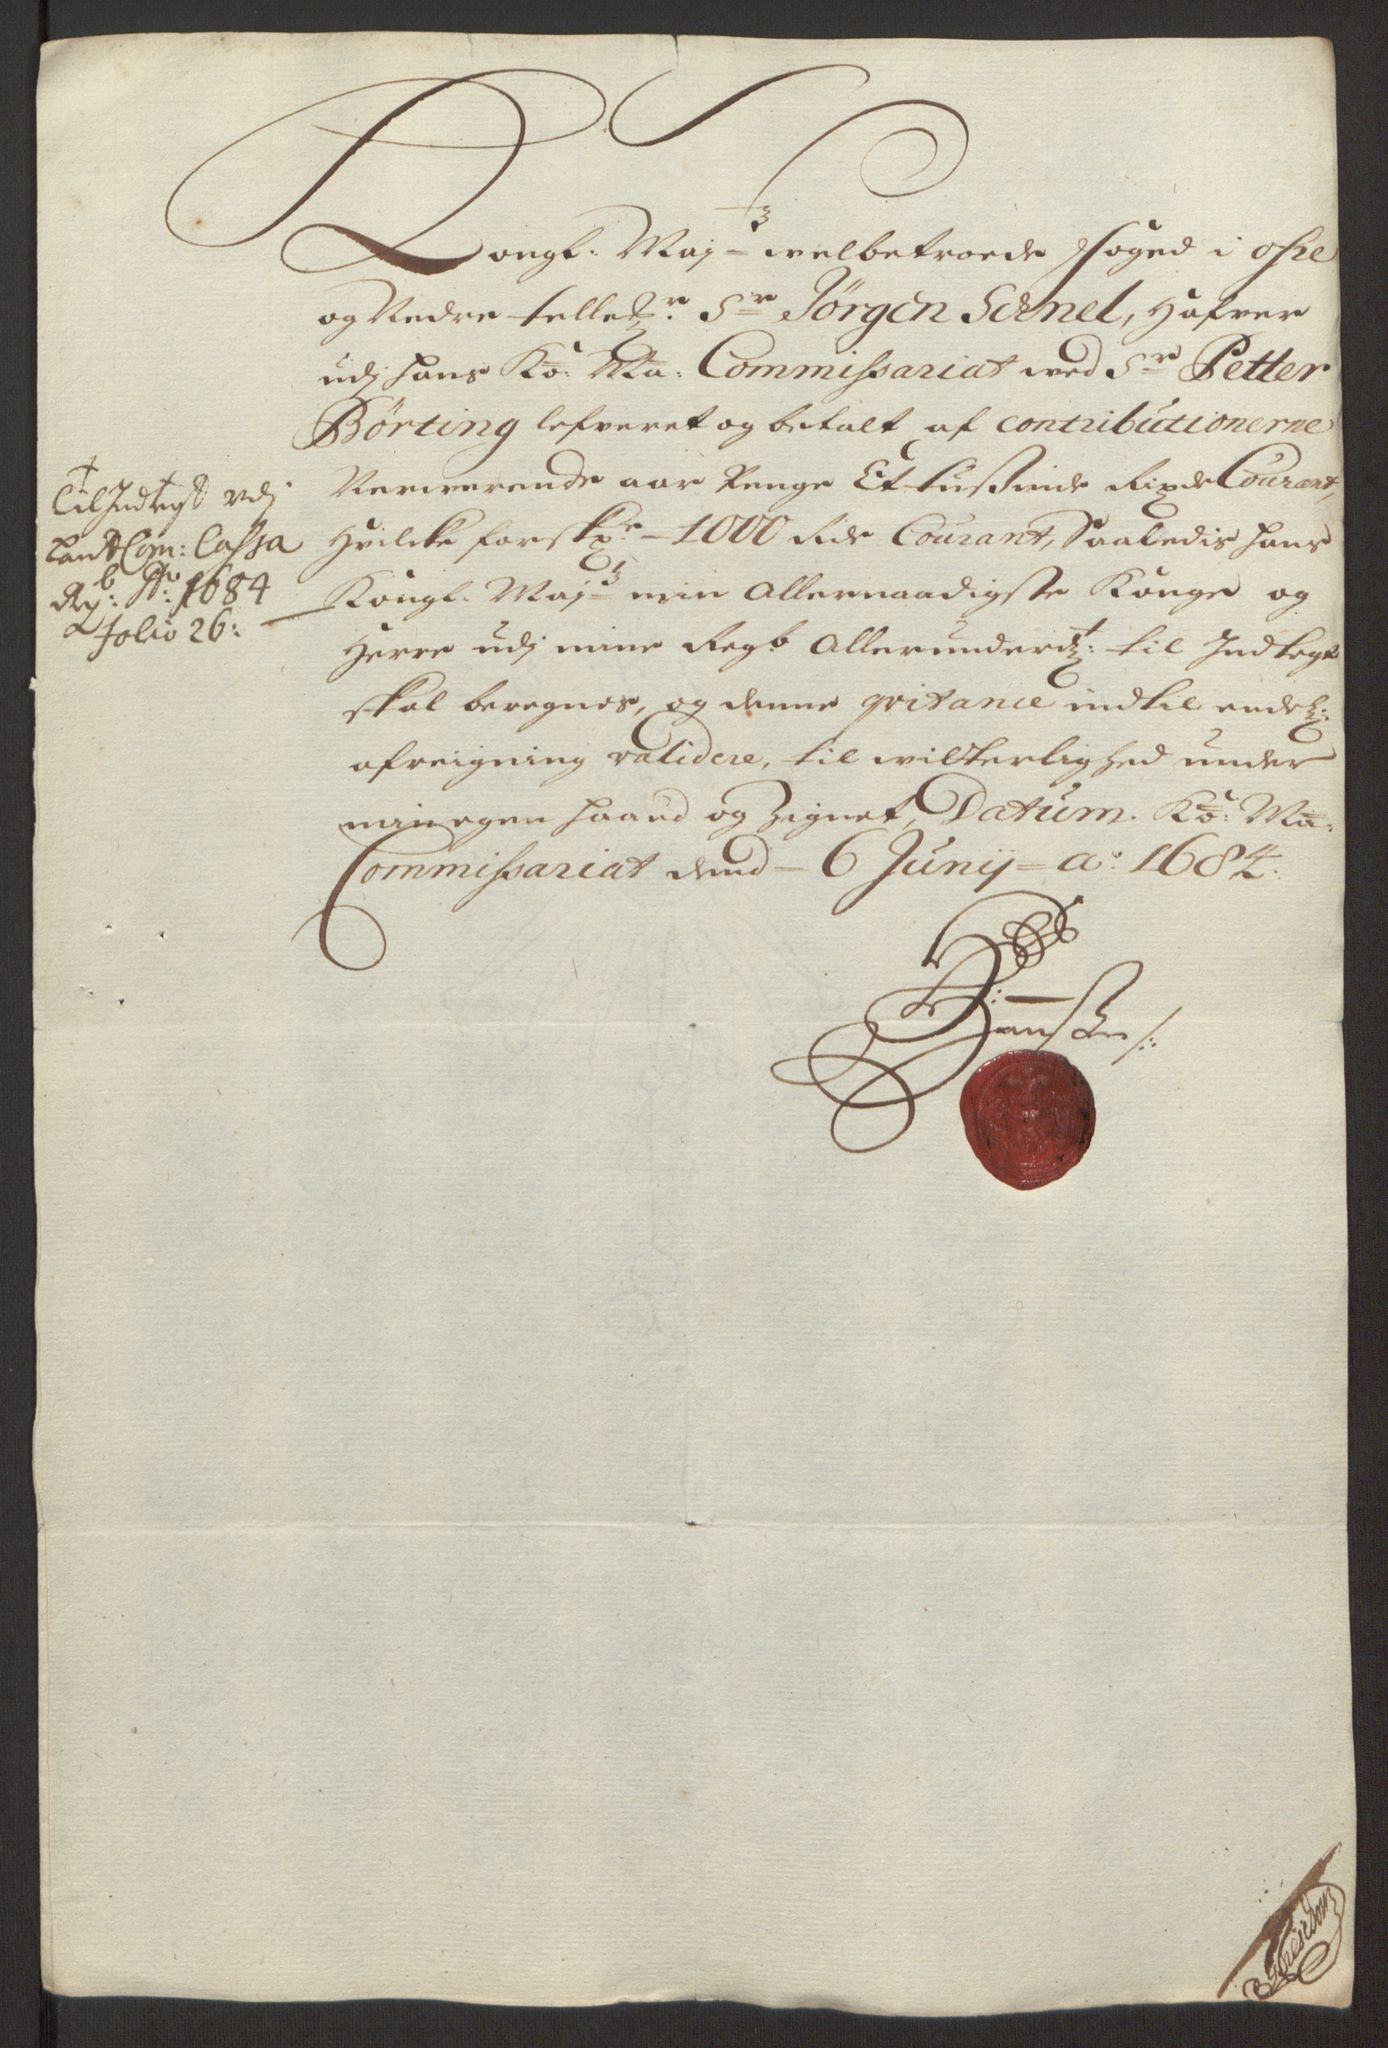 Kongl: May:tz welbetroede Foged i øfre
og Nedre Tellem: Sr Jörgen Schnel, Hafver
udj hans Ko: Ma: Commissariat wed Sr Petter
Börting lefveret og betalt af contributionerne
Nerverende aar Penge Et tusinde Rixdr Courant,
Hvilcke forskr: 1000 Rdr Courant, Saaledis hans
Kongl: May:tz min Allernaadigste Konge og
Herre udj mine Regb: Allerunderd: til Indtegt
skal beregnes, og denne qvitance indtil endel:
afreigning validere, til witterlighed under
min egen haand og Zignet, Datum. Ko: Ma:
Commissariat dend 6 Junij a: 1684.
Til Indtegt udj
Land Com: Cassa
Reg: b: pro: 1684
folio 26: